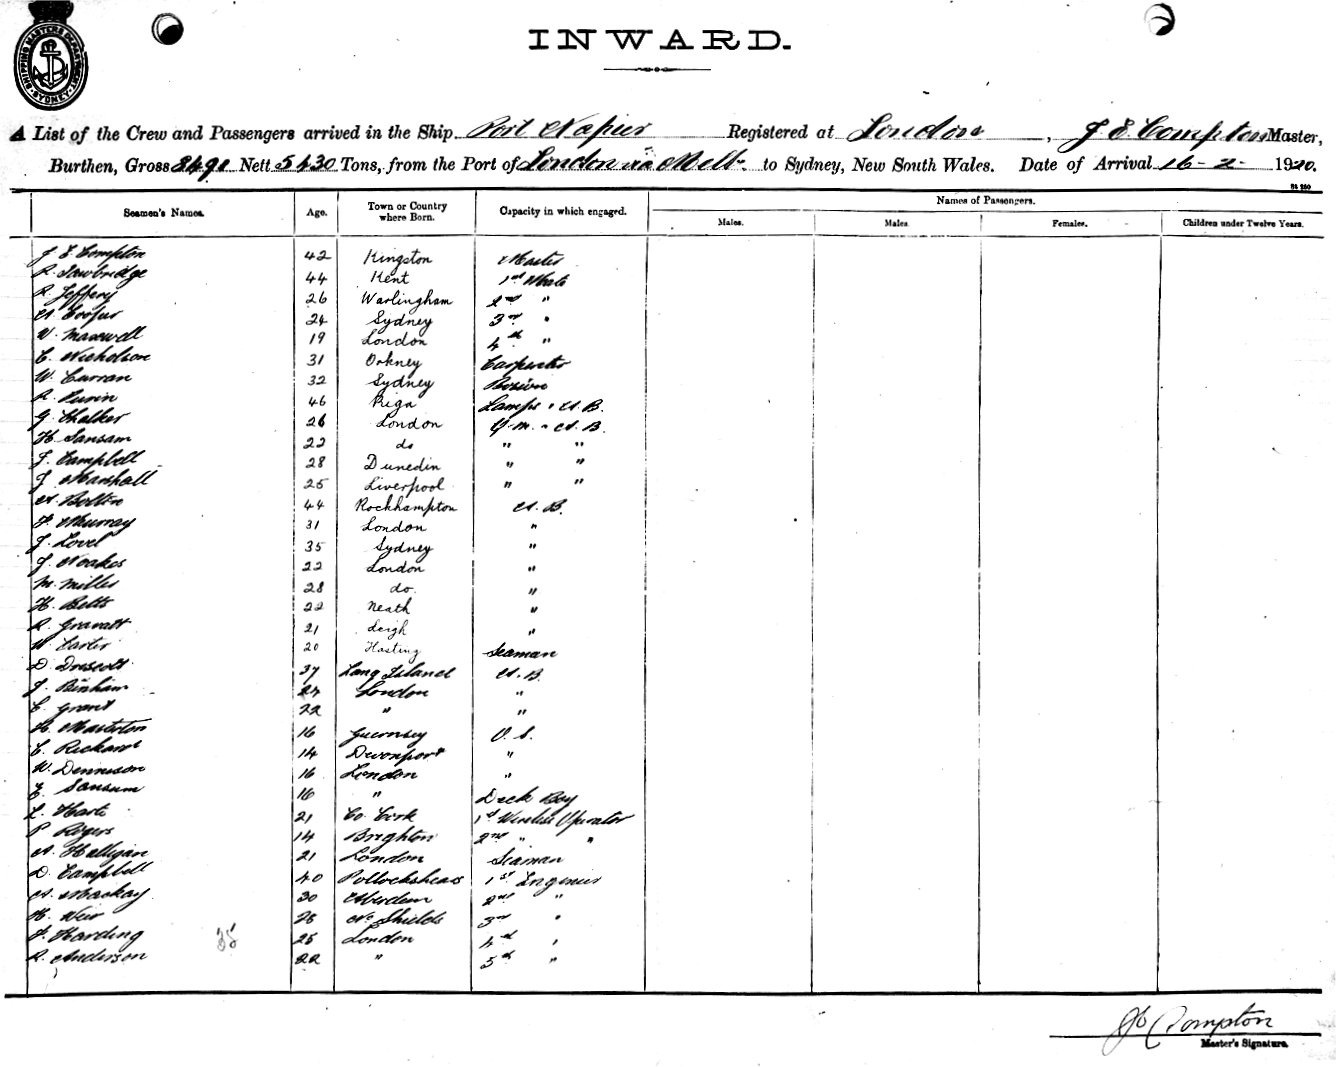 SHIPPING MASTERS DEPARTMENT SYDNEY
INWARD.
A List of the Crew and Passengers arrived in the Ship Port Napier Registered at London, J E Compton Master,
Burthen, Gross 8490 Nett 5430 Tons, from the Port of London via Melb. to Sydney, New South Wales. Date of Arrival 16-2-1920.
Names of Passengers.
Seamen's Names. Age. Town or Country where Born. Capacity in which engaged. Males. Males Females. Children under Twelve Years.
J E Compton 42 Kingston Master
R. Sawbridge 44 Kent 1st Mate
R. Jeffery 26 Warlingham 2nd "
A. Cooper 24 Sydney 3rd "
W. Maxwell 19 London 4th "
C. Nicholson 31 Orkney Carpenter
W. Curran 32 Sydney Bosun
R. 46 Riga Lamps & A.B.
G. Chalker 26 London Q.M. & A.B.
H. Sansam 22 do " "
J. Campbell 28 Dunedin " "
J. Marshall 25 Liverpool " "
A. Bolton 44 Rockhampton A.B.
F. Murray 31 London "
J. Lovel 35 Sydney "
J. Noakes 22 London "
M. Miller 28 do. "
H. Betts 22 Neath "
R. Gravatt 21 Leigh "
W. Carter 20 Hasting Seaman
D. Driscoll 37 Long Island A.B.
J. Binham 24 London "
C. Grant 22 " "
H. Masterton 16 Guernsey O.S.
C. Rickard 14 Devonport "
W. Dennison 16 London "
E. Sansum 16 " Deck Boy
L. Harte 21 Co. Cork 1st Wireless Operator
P. Rogers 14 Brighton 2nd " "
A. Halligan 21 London Seaman
D. Campbell 40 Pollockshaws 1st Engineer
A. Mackay 30 Aberdeen 2nd "
H. Weir 25 No. Shields 3rd "
F. Harding 25 London 4th "
R. Anderson 22 " 5th "
35
J E Compton
Master's Signature.